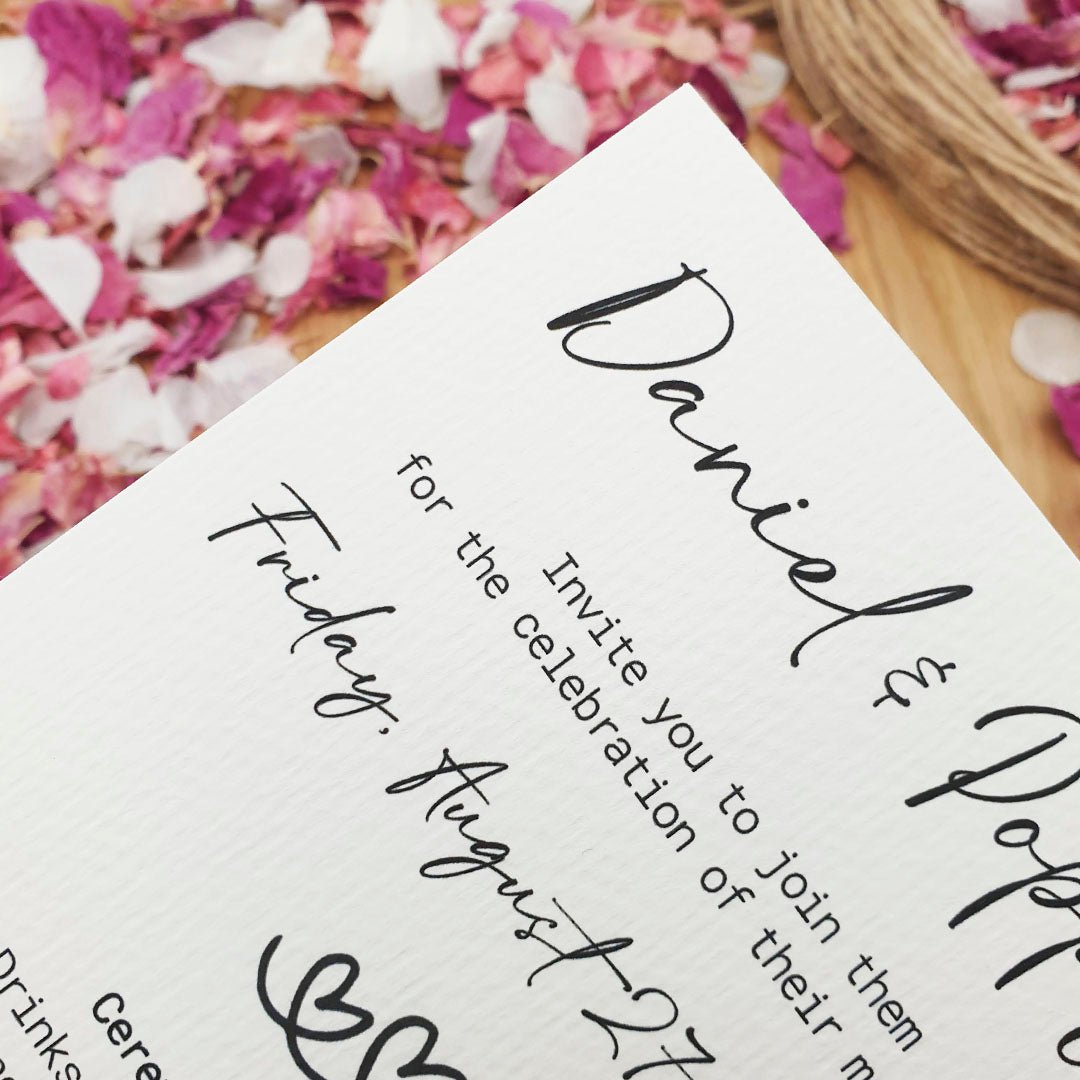 Daniel & Pop
Invite you to join them
for the celebration of their m
Friday, August 27
Cere
Drinks